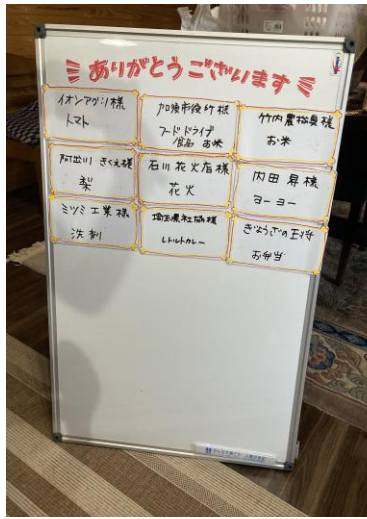 ありがとうございます
イオンアグリ様
トマト
加須市役所様
フードドライブ
食品 お米
竹内農松奥様
お米
きくえ様
梨
石川花火店様
花火
内田昇様
ヨーヨー
ミツミ工業様
洗剤
埼玉県社協様
レトルトカレー
ぎょうざの王将
お弁当